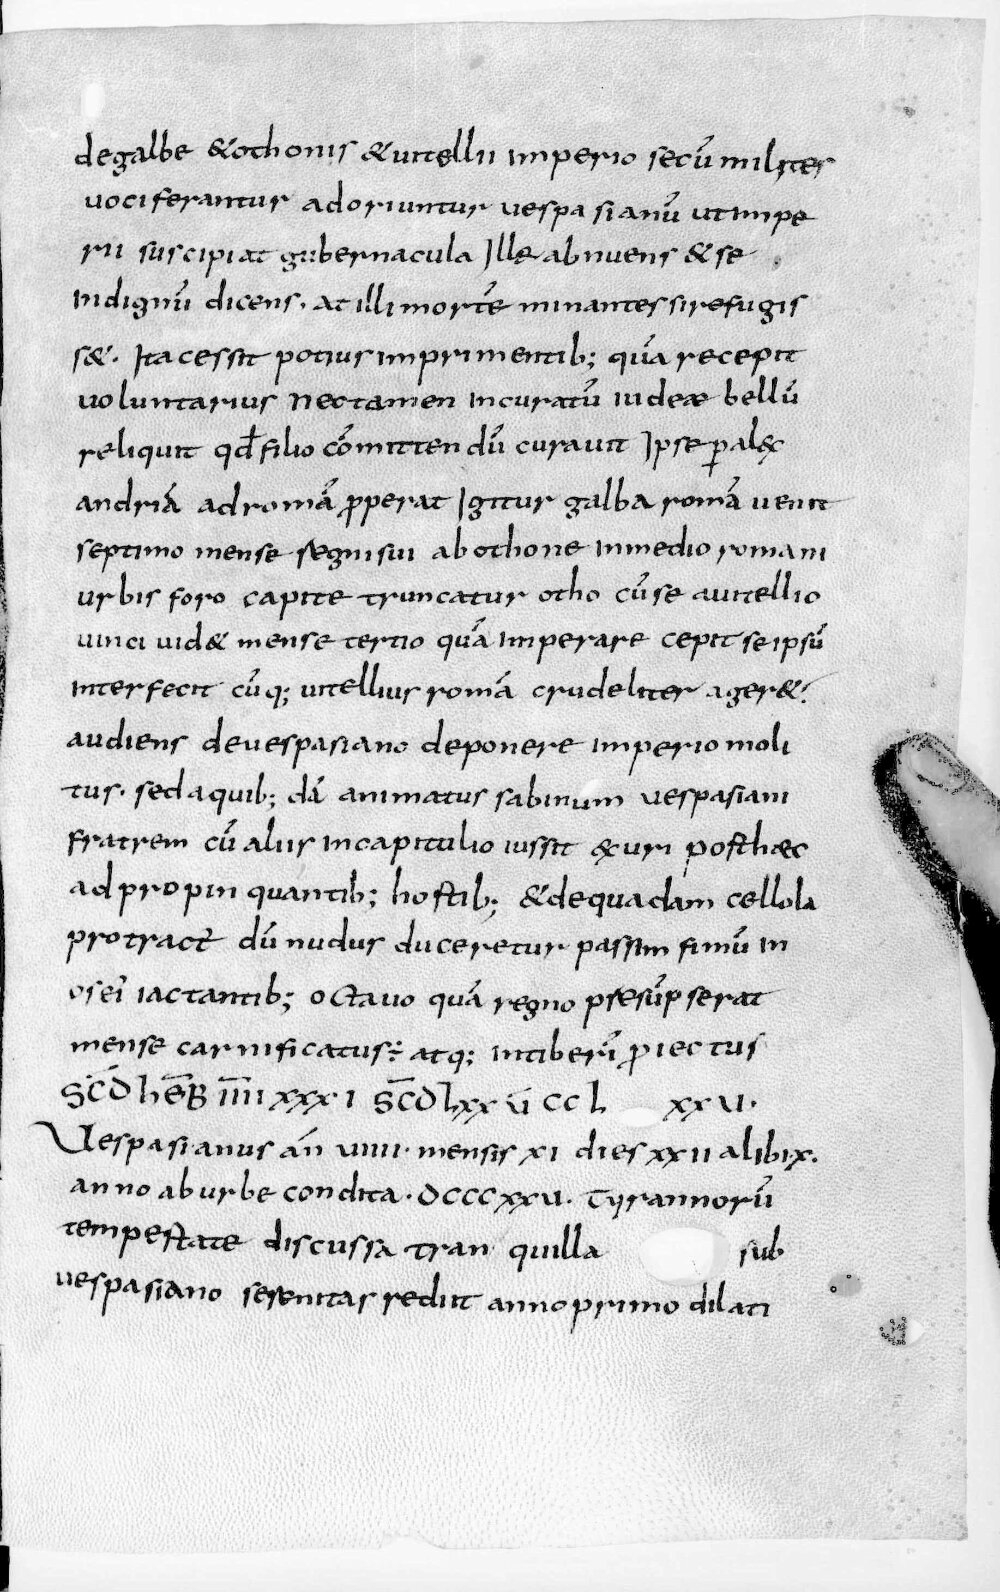 degalbe &othonis &uitellii imperio secū militer
uociferantur adoriuntur uespasianū utimpe
rii suscipiat gubernacula Ille abnuens &se
indignū dicens. at illi mortē minantes sirefugis
s&. Ita cessit potius imprimentib; quā recepit
uoluntarius nec tamen incuratū iudeæ bellū
reliquit qđ filio cōmittendū curauit Ipse ꝑ alęc
andriā adromā ꝓperat Igitur galba romā uenit
septimo mense regni sui ab othone inmedio romani
urbis foro capite truncatur otho cū se auitellio
uinci uid& mense tertio quā imperare cepit se ipsū
interfecit cūq; uitellius romā crudeliter ager&.
audiens deuespasiano deponere imperio moli
tus. sed a quib; dā animatus sabinum uespasiani
fratrem cū aliis incapitulio iussit ęxuri posthæc
adpropinquantib; hostib; &dequadam cellola
protract̄ dū nudus duceretur passim fimū in
os eī iactantib; octauo quā regno p̄sūpserat
mense carnificatus: atq; intiberī ꝓiectus
SC̄D hēB IIII xxxI SC̄D lxx ū CC L xxVI.
Uespasianus ān uiiii. mensis xi dies xxii alibi.x.
anno ab urbe condita. DCCCxxu. Tyrannorū
tempestate discussa tranquilla sub
uespasiano serenitas rediit anno primo dilati